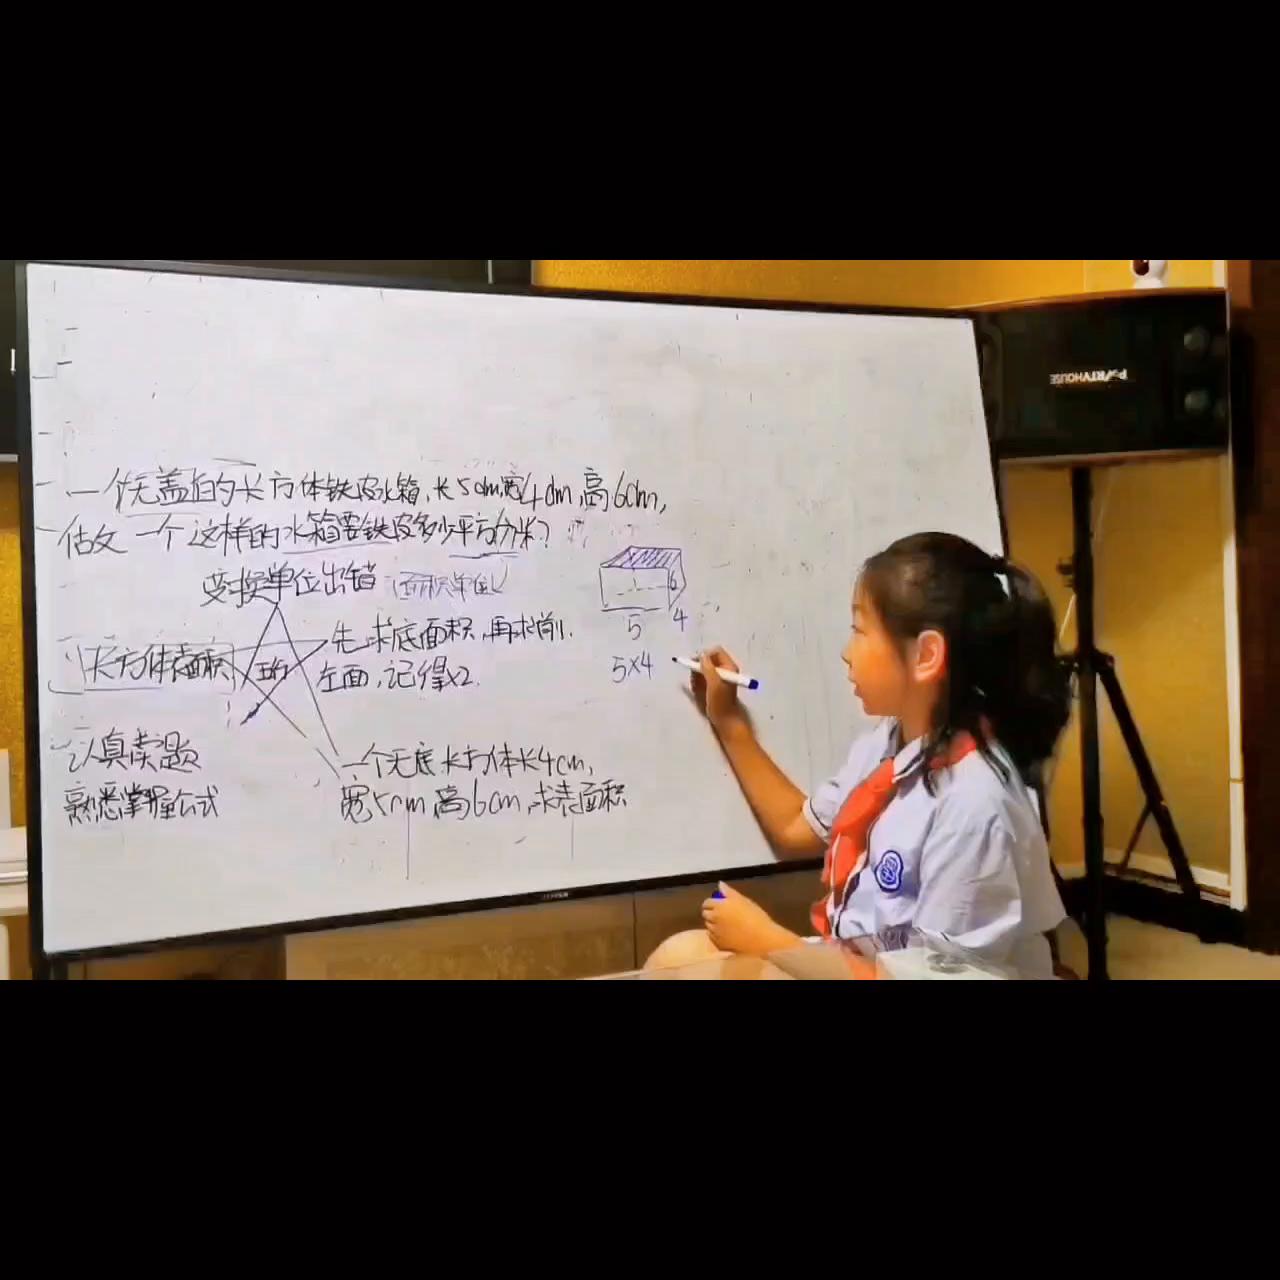 一个无盖的长方体铁皮水箱,长5dm,宽4dm,高6dm,
估文 一个这样的水箱需铁皮多少平方分米?
变换单位出错(面积单位)
先求底面积,再求前、
长方体表面积
左面,记得x2.
认真读题
一个无底长方体长4cm,
熟悉掌握公式
宽5cm,高6cm,求表面积
6
5
4
5×4
PARTYHOUSE